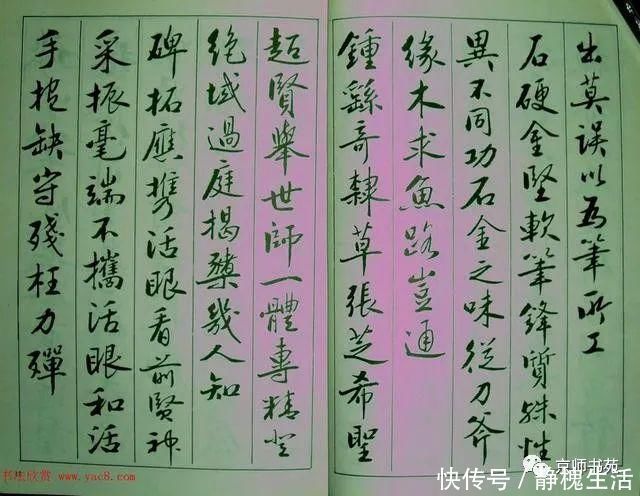 出莫誤以為筆所工
石硬金堅軟筆鋒質殊性
異不同功石金之味從刀斧
緣木求魚路豈通
鍾繇奇隸草張芝希聖
超賢舉世師一體專精登
絕域過庭揭櫫幾人知
碑拓應携活眼看前賢神
采振毫端不攜活眼和活
手抱缺守殘枉力殫
书法欣赏 www.yac8.com
京师书苑
快传号/静槐生活